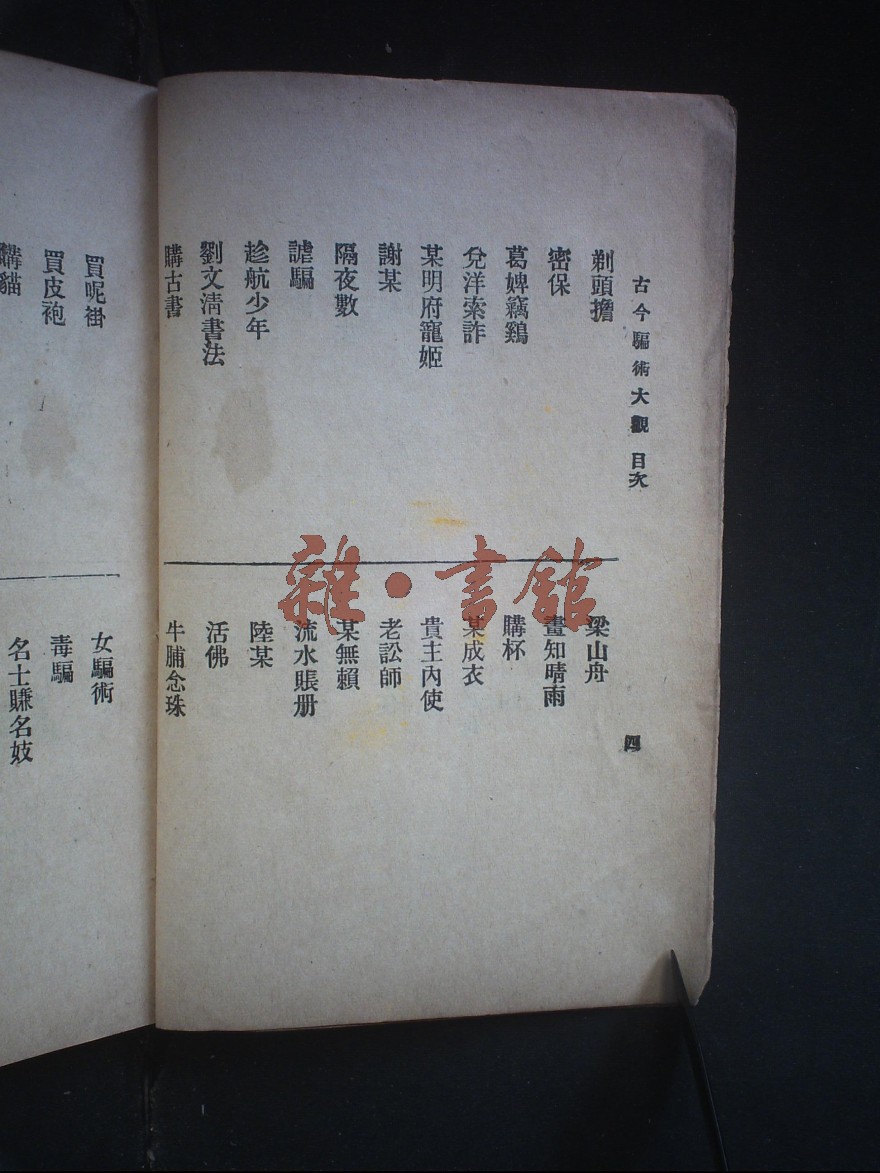 古今騙術大觀 目次
四
剃頭擔
密保
葛婢竊鷄
兌洋索詐
某明府寵姬
謝某
隔夜數
謔騙
趁航少年
劉文淸書法
購古書
梁山舟
畫知晴雨
購杯
某成衣
貴主內使
老訟師
某無賴
流水賬册
陸某
活佛
牛脯念珠
買呢褂
買皮袍
購貓
女騙術
毒騙
名士賺名妓
雜·書館